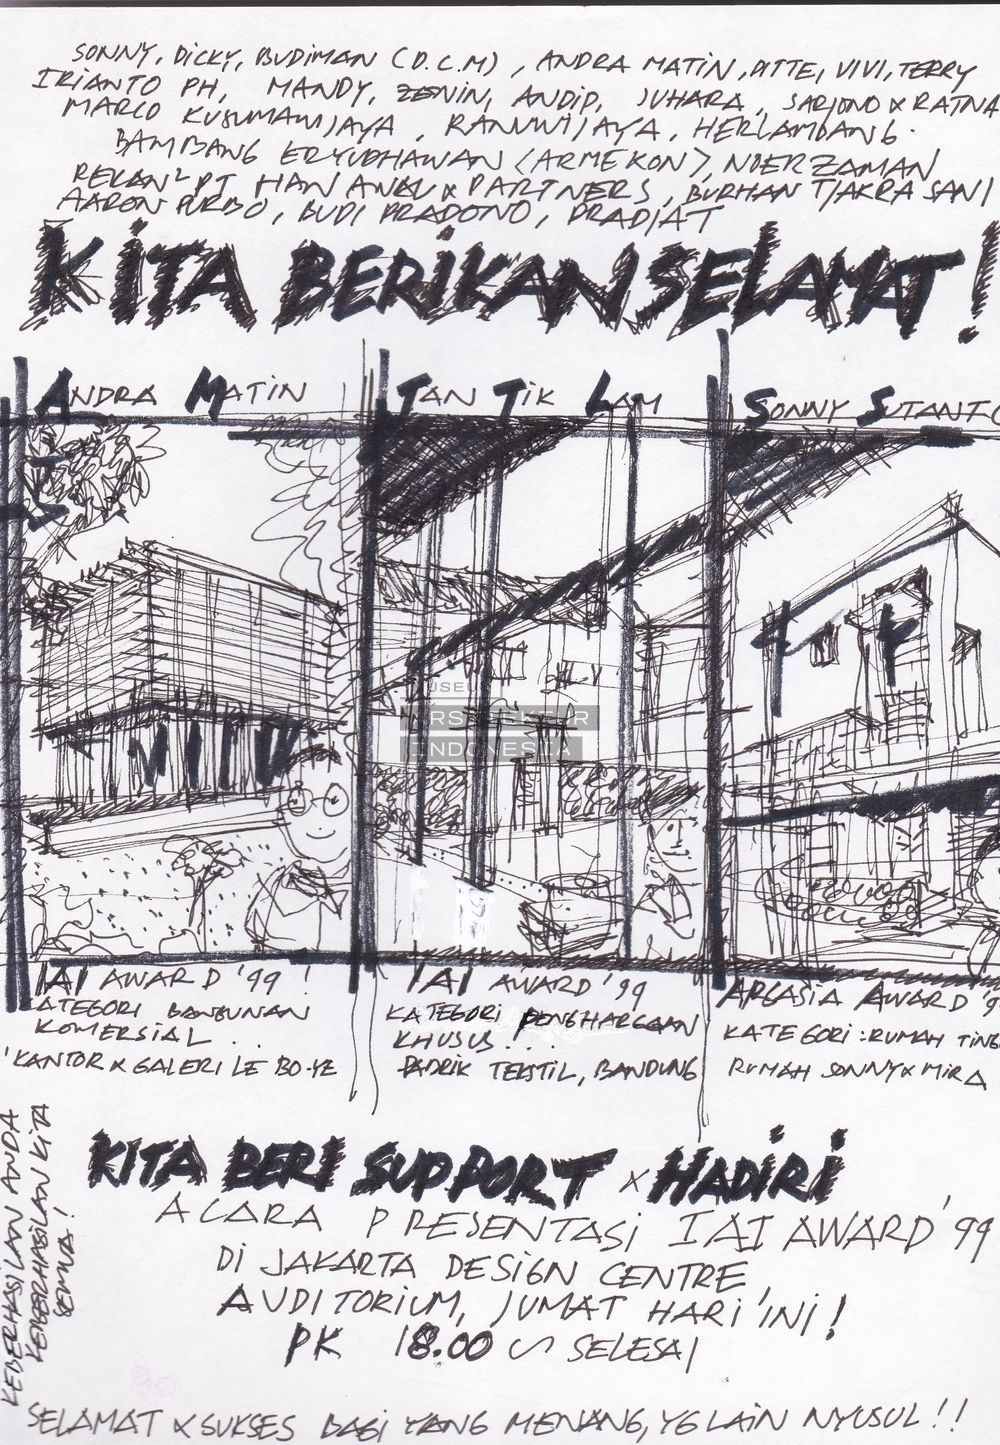 SONNY, DICKY, BUDIMAN (D.C.M), ANDRA MATIN, DITTE, VIVI, TERRY
IRIANTO PH, MANDY, ZENIN, ANDIP, SUHARA, SARJONO & RATNA
MARCO KUSUMAWIJAYA, RANUWIJAYA, HERLAMBANG.
BAMBANG ERYUDHAWAN (ARMEKON), NOERZAMAN
REKAN² PT HAN AWAL & PARTNERS, BURHAN TJAKRA SANI
AARON PURBO, BUDI PRADONO, PRADJAT
KITA BERIKAN SELAMAT!
ANDRA MATIN
TAN TIK LAM
SONNY SUTANTO
MUSEUM
ARSITEKTUR
INDONESIA
IAI AWARD '99!
KATEGORI BANGUNAN
KOMERSIAL...
'KANTOR & GALERI LE BO-YE
IAI AWARD '99
KATEGORI PENGHARGAAN
KHUSUS!..
PABRIK TEKSTIL, BANDUNG
ARCASIA AWARD '9
KATEGORI: RUMAH TING
RUMAH SONNY & MIRA
KEBERHASILAN ANDA
KEBERHASILAN KITA
SEMUA!
KITA BERI SUPPORT & HADIRI
ACARA PRESENTASI IAI AWARD '99
DI JAKARTA DESIGN CENTRE,
AUDITORIUM, JUMAT HARI INI!
PK 18.00 ~ SELESAI
SELAMAT & SUKSES BAGI YANG MENANG, YG LAIN NYUSUL!!